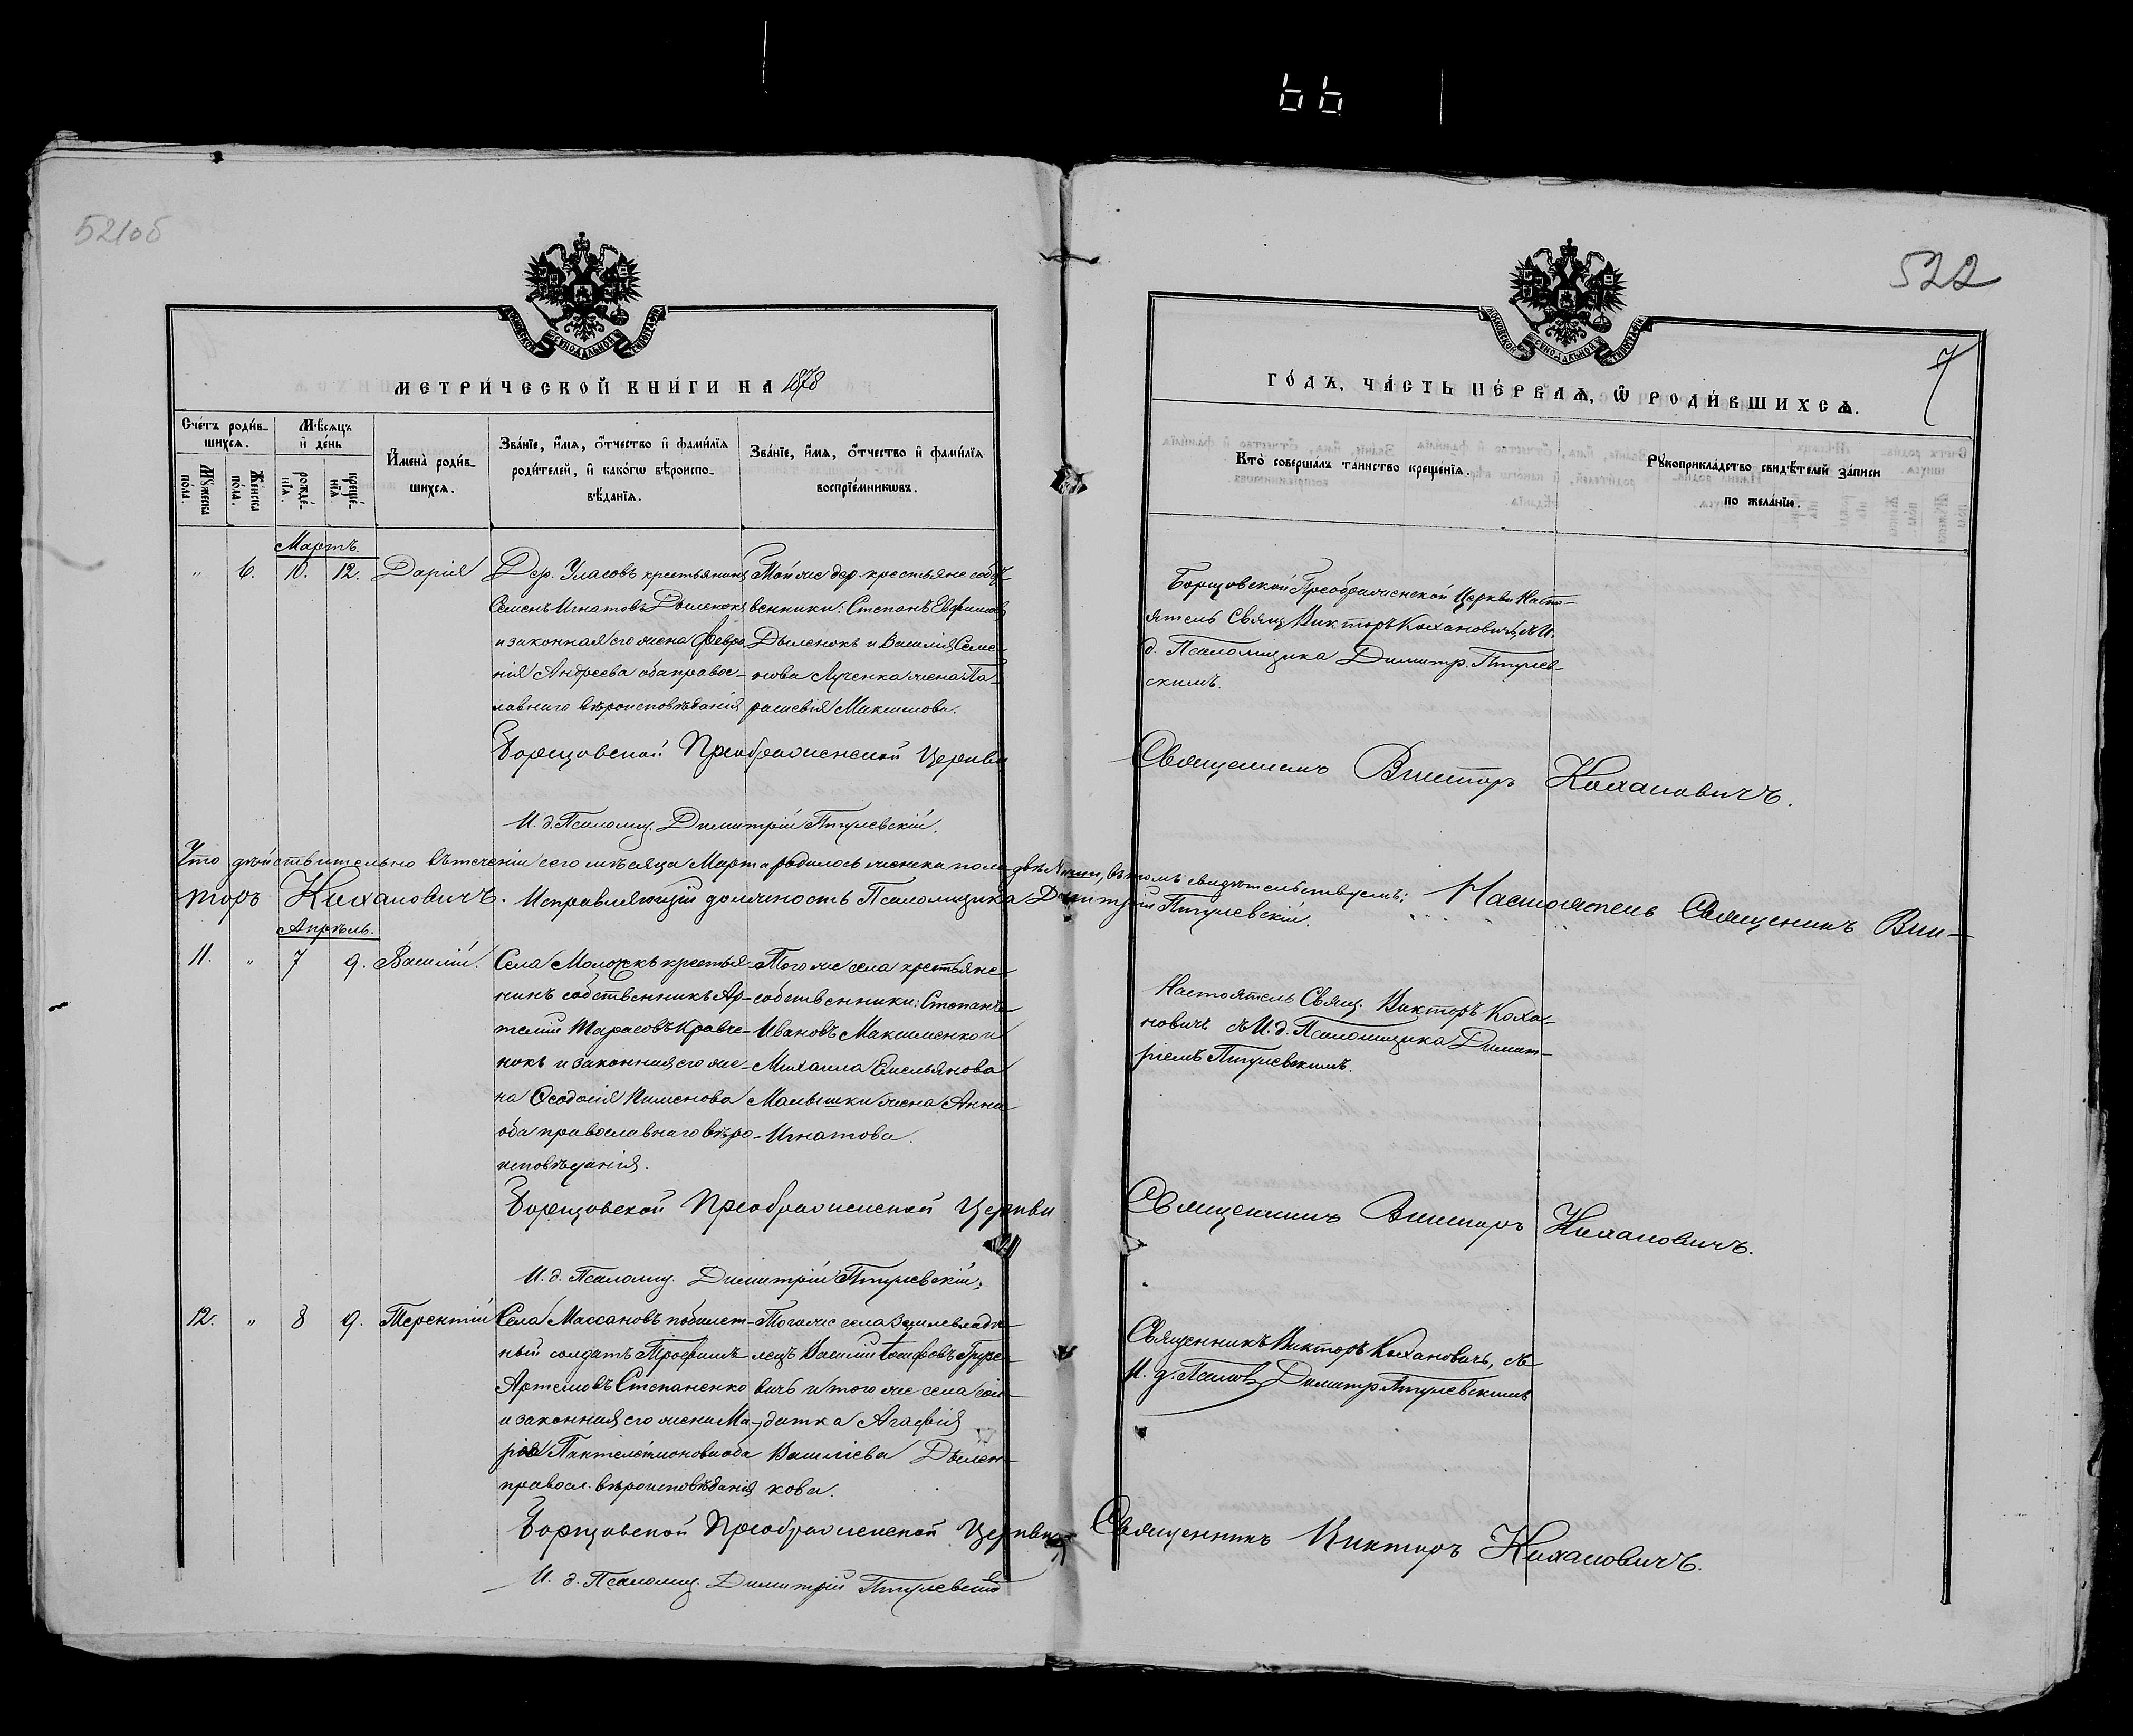 66
521об
522
7
МЕТРИ́ЧЕСКОЙ КНИ́ГИ НА 1878
ГО́ДЪ, ЧА́СТЬ ПЕ́РВАѦ, Ѽ РОДИ́ВШИХСѦ.
Сче́тъ роди́в-
шихся.
Мѣ́сяцъ
и҆ де́нь
Мꙋ́жеска
по́ла.
Же́нска
по́ла.
рожде́-
нїѧ.
креще́-
нїѧ.
И҆мена̀ роди́в-
шихсѧ.
Зва́нїе, и҆́мѧ, ѻ҆́тчество и҆ фами́лїѧ
роди́телей, и҆ како́гѡ вѣроиспо-
вѣ́данїѧ.
Зва́нїе, и҆́мѧ, ѻ҆́тчество и҆ фами́лїѧ
воспрїе́мникѡвъ.
Кто̀ соверша́лъ таинство креще́нїѧ.
Рꙋкоприкла́дство свидѣ́телей за́писи
по жела́нїю.
Мартъ.
" 6. 10. 12. Дарія
Дер. Уласовъ крестьянинъ
Семенъ Игнатовъ Дыленокъ
и законная его жена Февро-
нія Андреева оба правос-
лавнаго вѣроисповѣданія
Той же дер. крестьяне собст-
венники: Степанъ Евфимовъ
Дыленокъ и Василія Семе-
нова Лученка жена Па-
раскевія Максимова.
Борщовской Преображенской Церкви Насто-
ятель Свящ. Викторъ Кохановичъ съ И.
д. Псаломщика Димитр. Птулев-
скимъ.
Борщовской Преображенской Церкви
Священникъ Викторъ Кохановичъ.
И. д. Псаломщ. Димитрій Птулевскій.
Что дѣйствительно въ теченіи сего мѣсяца Марта родилось женска пола двѣ въ томъ свидѣтельствуемъ: Настоятель Священникъ Вик-
торъ Кохановичъ. Исправляющій должность Псаломщика Димитрій Птулевскій.
Апрѣль.
11. " 7 9. Василій.
Села Моложъ крестья-
нинъ собственникъ Ар-
темій Тарасовъ Кравче-
нокъ и законная его же-
на Ѳеодосія Пименова
оба православнаго вѣро-
исповѣданія.
Того же села крестьяне
собственники: Степанъ
Ивановъ Максименко и
Михаила Емельянова
Малышки жена Анна
Игнатова.
Настоятель Свящ. Викторъ Коха-
новичъ съ И. д. Псаломщика Димит-
ріемъ Птулевскимъ.
Борщовской Преображенской Церкви
Священникъ Викторъ Кохановичъ.
И. д. Псаломщ. Димитрій Птулевскій.
12. " 8 9. Терентій
Села Массановъ побилет-
ный солдатъ Трофимъ
Артемовъ Степаненко
и законная его жена Ма-
рія Пантелеймонова оба
правосл. вѣроисповѣданія
Того же села землевладѣ-
лецъ Василій Іосифовъ
и того же села сол-
датка Агафія
Василіева Дылен-
кова.
Священникъ Викторъ Кохановичъ, съ
И. д. Псалом. Димитр. Птулевскимъ
Борщовской Преображенской Церкви
Священникъ Викторъ Кохановичъ.
И. д. Псаломщ. Димитрій Птулевскій